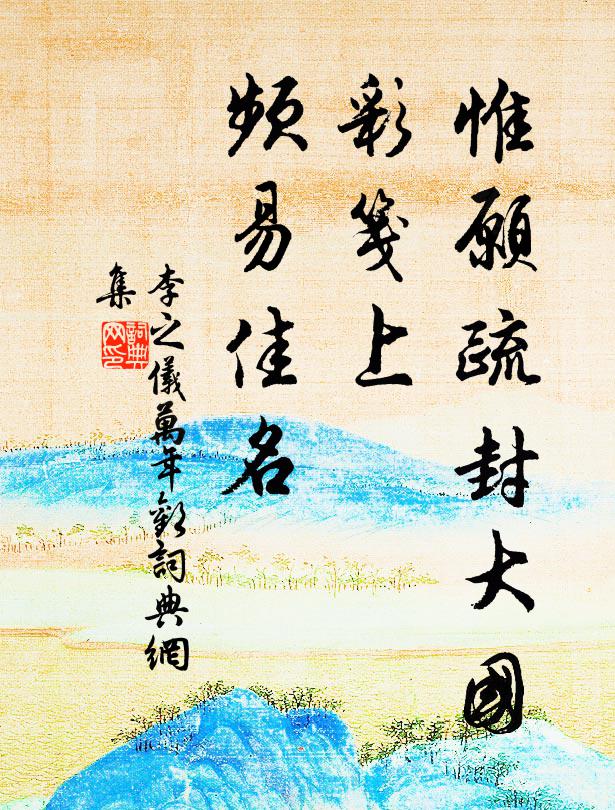 惟願疏封大國
彩箋上
頻易佳名
李之儀萬年歡詞典網
集
詞典
网印